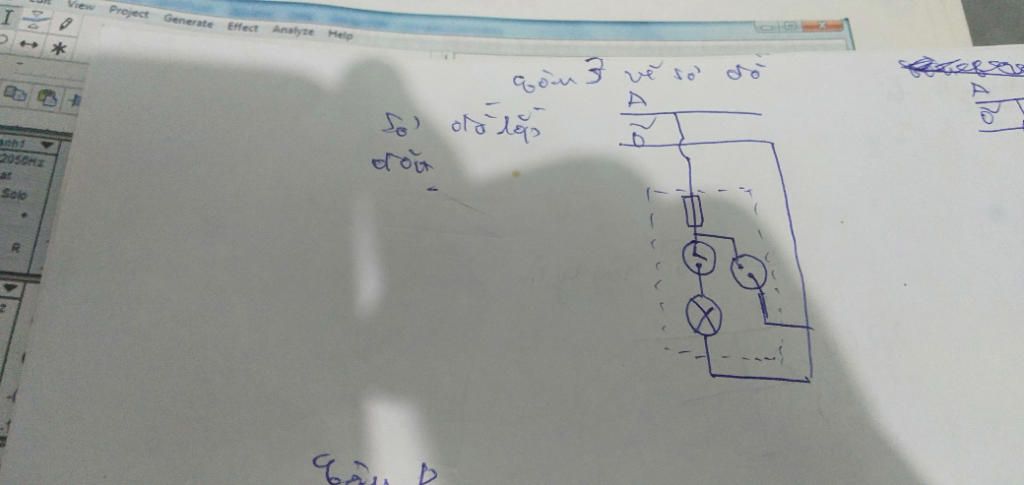 View Project Generate Effect Analyze Help
2050Hz
Solo
R
câu 3 vẽ sơ đồ
A
O
sơ đồ lắp
đặt
A
O
câu